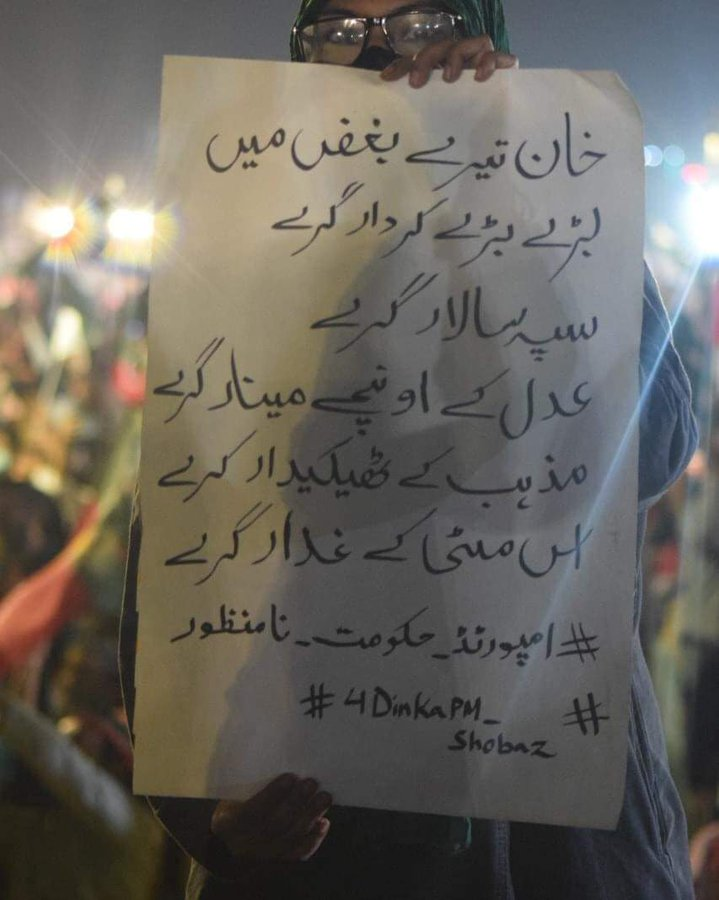 خان تیرے بغض میں
بڑے بڑے کردار گرے
سپہ سالار گرے
عدل کے اونچے مینار گرے
مذہب کے ٹھیکیدار گرے
اس مٹی کے غدار گرے
#امپورٹڈ_حکومت_نامنظور
# 4DinKaPM_ #
Shobaz